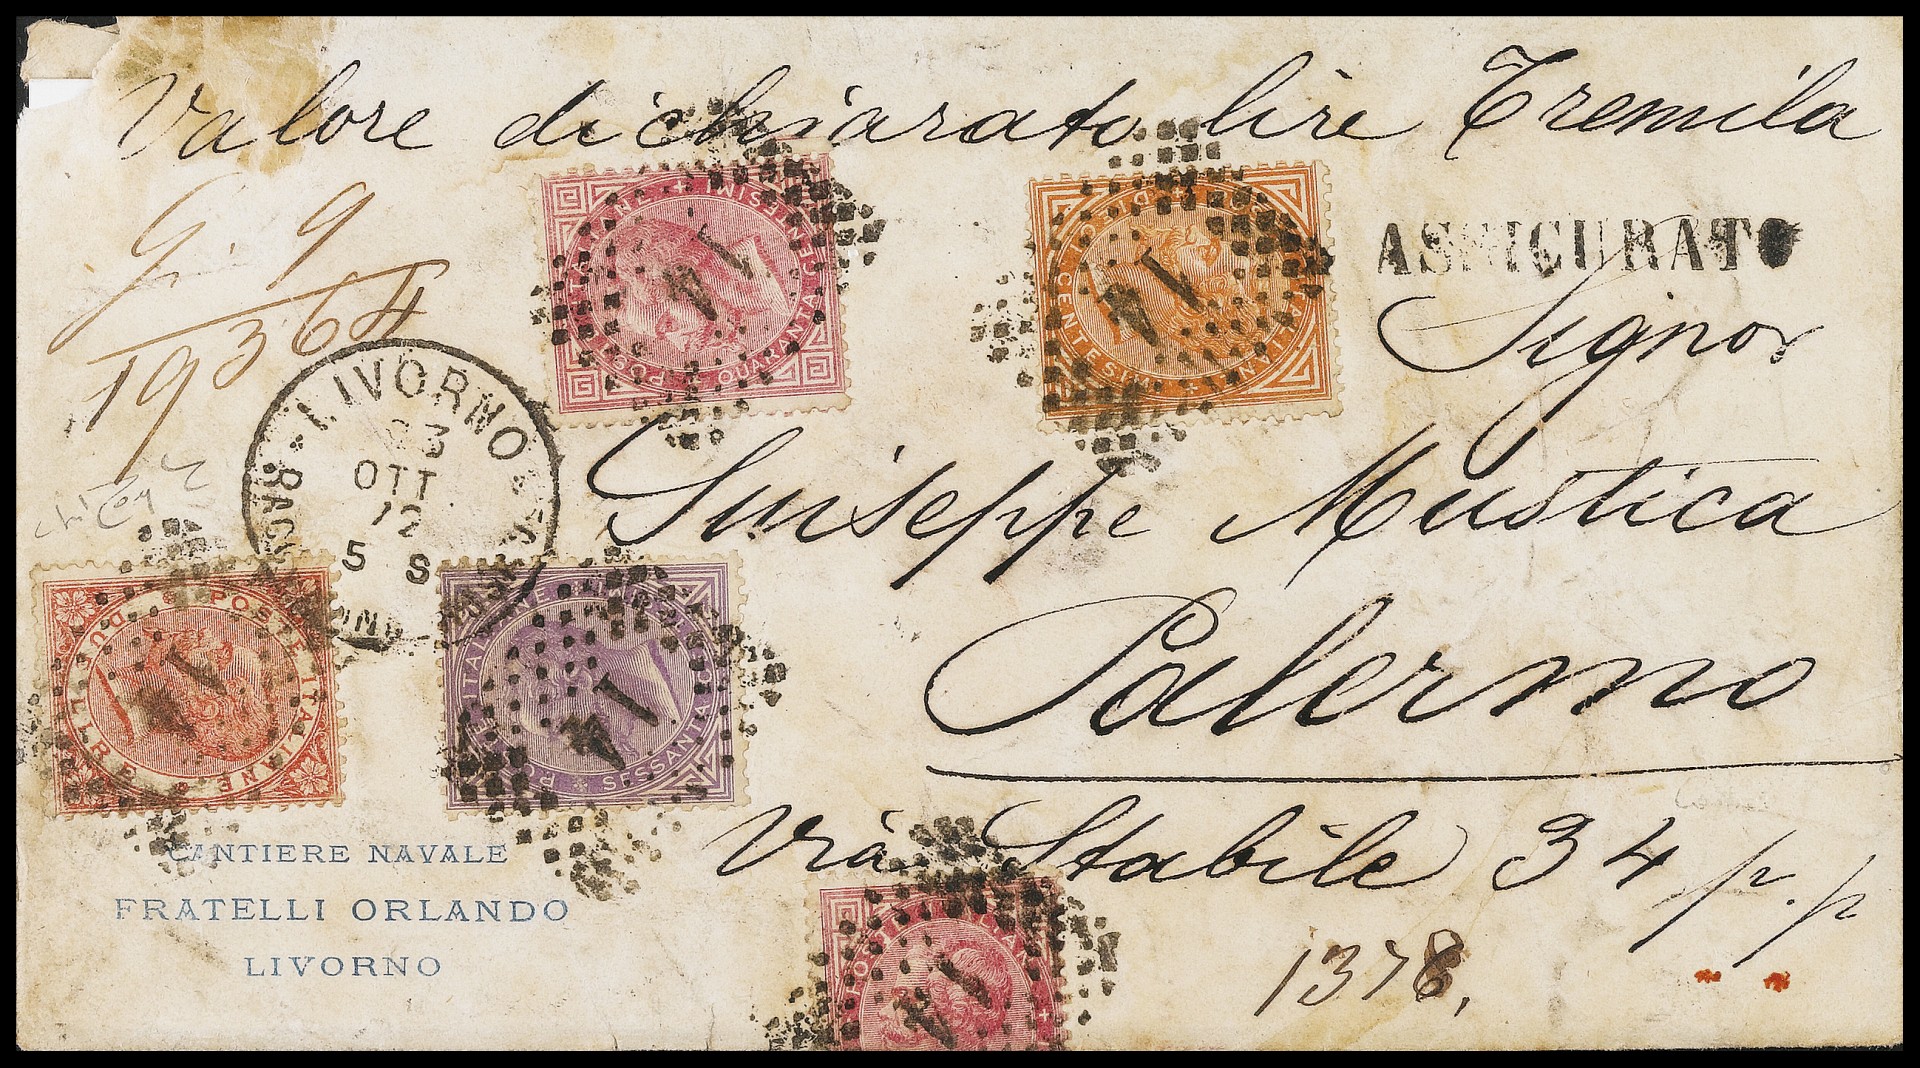 Valore dichiarato lire Tremila
G. 9
19364
ASSICURATO
Signor
Giuseppe Mustica
Palermo
Via Stabile 34 p.p
1378.
LIVORNO
23
OTT
72
5 S
POSTE ITALIANE QUARANTA CENTESIMI
POSTE ITALIANE DIECI CENTESIMI
POSTE ITALIANE DUE LIRE
POSTE ITALIANE SESSANTA CENTESIMI
POSTE ITALIANE
CANTIERE NAVALE
FRATELLI ORLANDO
LIVORNO